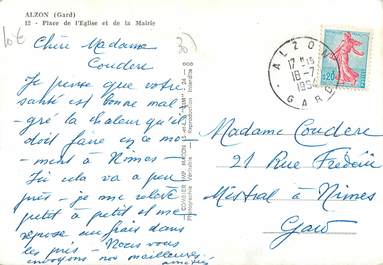 ALZON (Gard)
12 - Place de l'Eglise et de la Mairie
Chère Madame
Couderc
Je pense que votre
santé est bonne mal-
gré la chaleur qu'il
doit faire en ce mo-
ment à Nîmes -
Ici cela va à peu
près - je me relève
petit à petit et me
repose au frais dans
les prés - Nous vous
envoyons nos meilleures
amitiés
Reproduction interdite
ALZON
17-15
18-7
GARD
0,20
Madame Couderc
21 Rue Frédéric
Mistral à Nîmes
Gard